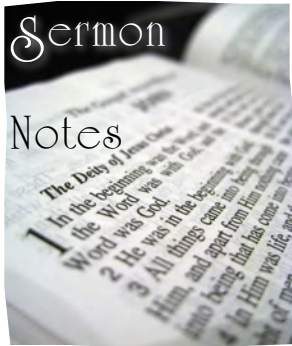 Sermon
Notes
The Deity of Jesus Christ
1 In the beginning was the Word,
the Word was with God, and the
Word was God.
2 He was in the beginning with
3 All things came into being
Him, and apart from Him nothing
into being that has come
4 In Him was life, and
of men